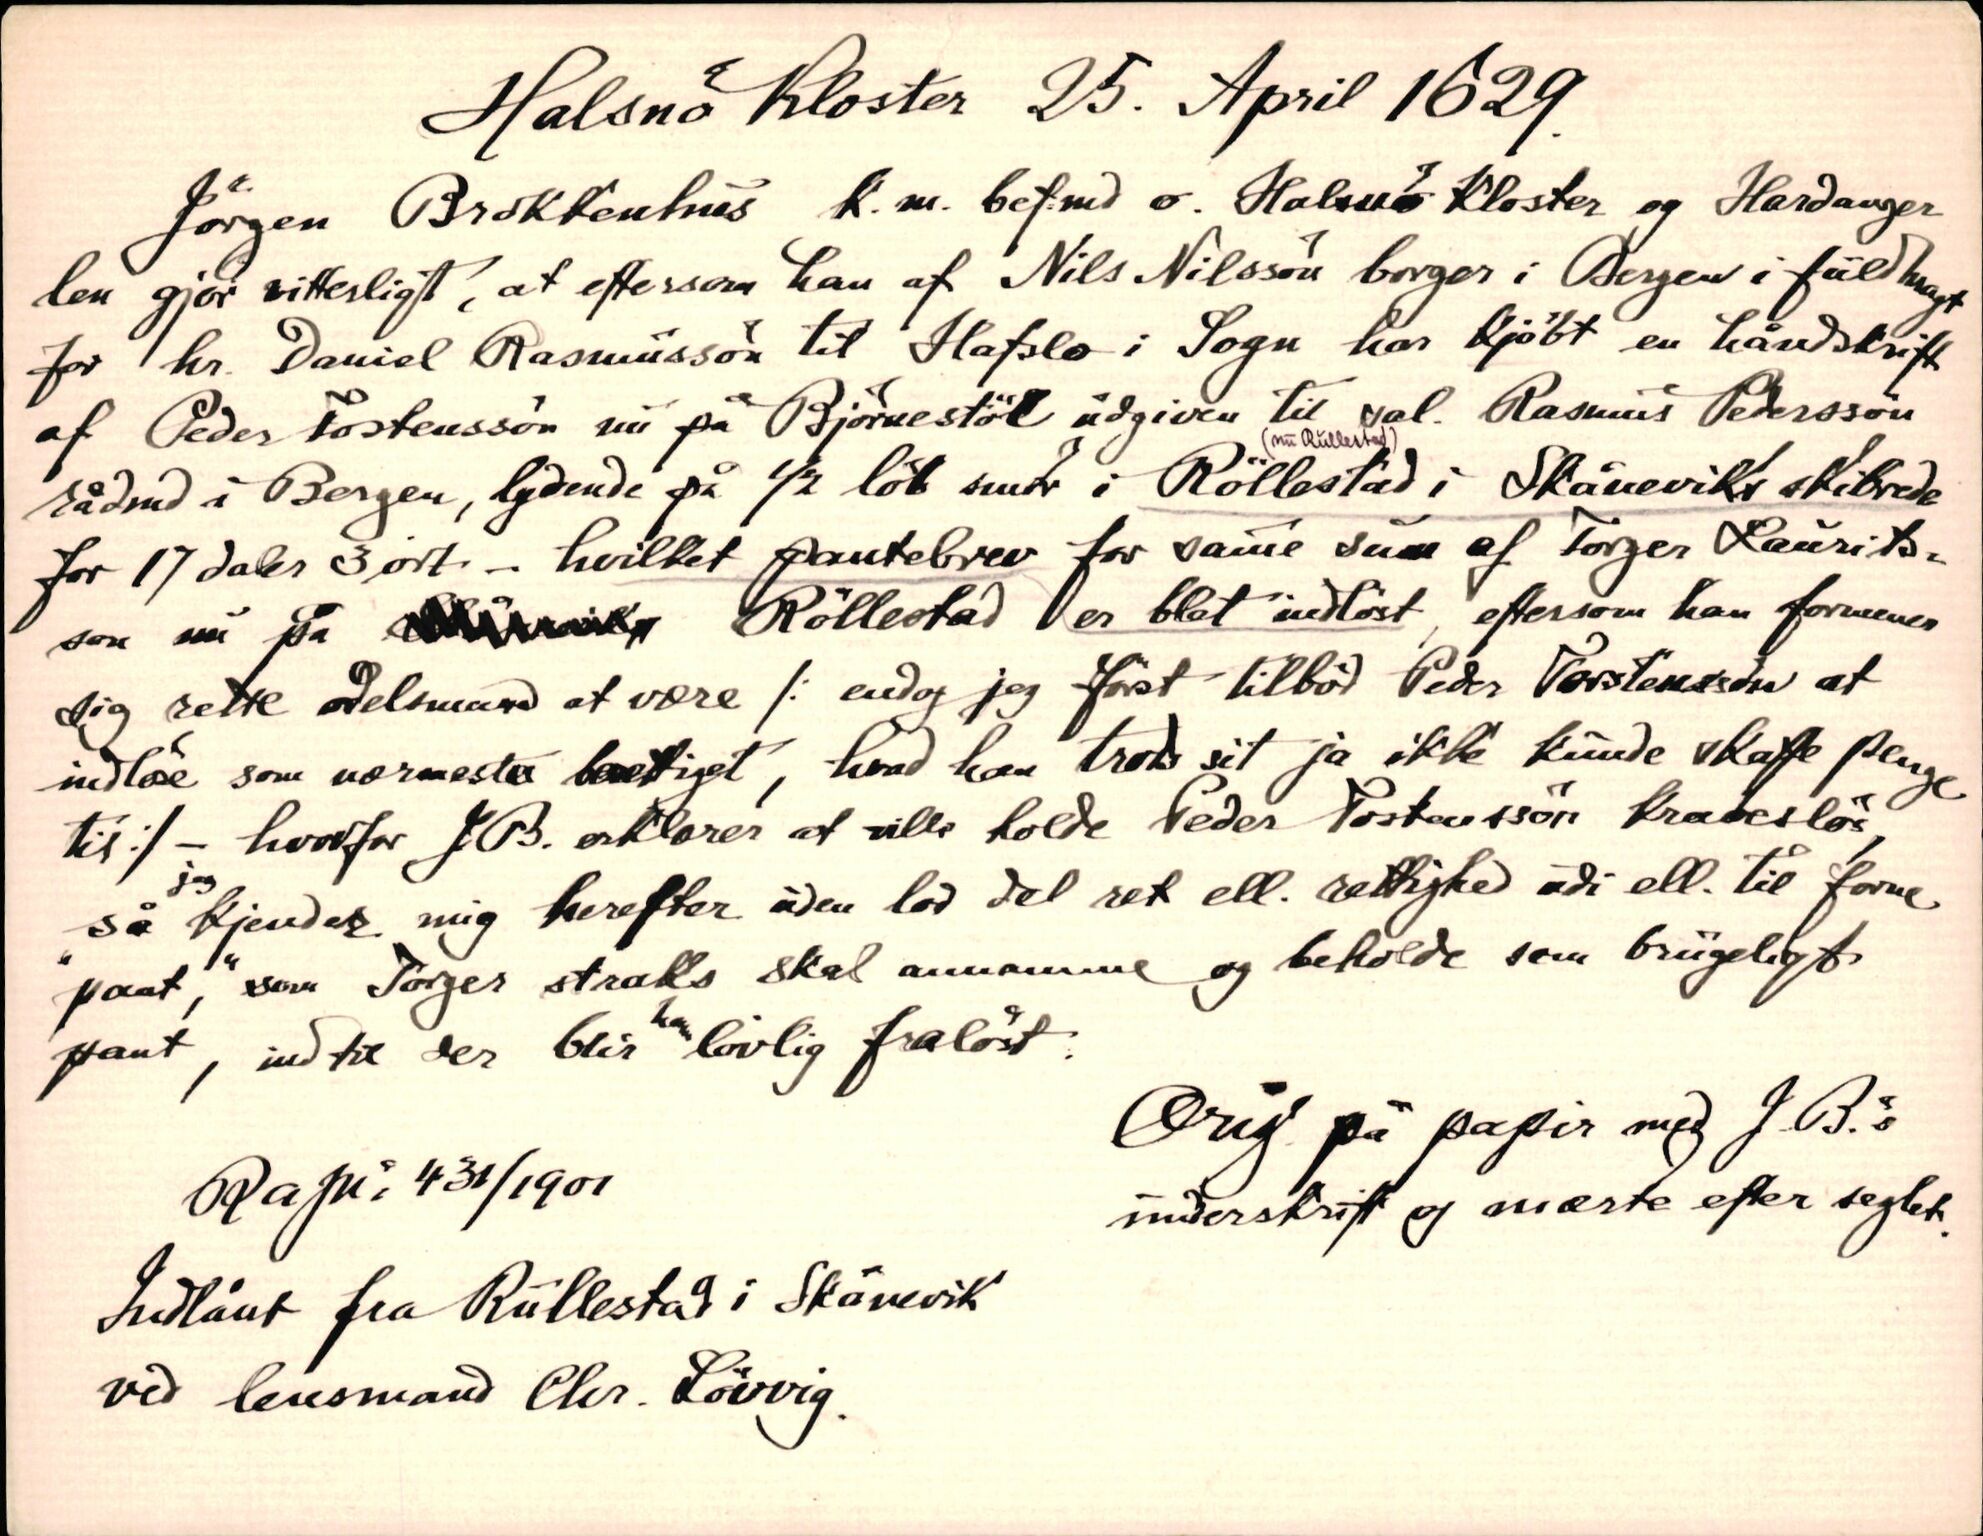 Halsnö Kloster 25. April 1629.
Jörgen Brokkenhus k. m. bef.md o. Halsnö Kloster og Hardanger
len gjör vitterligt, at eftersom han af Nils Nilssön borger i Bergen i fuldmagt
for hr. Daniel Rasmussön til Hafslo i Sogn har kjöbt en håndskrift
af Peder Tostenssön nu på Björnestöl udgiven til sal. Rasmus Pederssön
(nu Rullestad)
rådmd i Bergen, lydende på 1/2 löb smör i Röllestad i Skånevikr skibrede
for 17 daler 3 ort. – hvilket pantebrev for samme sum af Torger Laurits-
son nu på Röllestad er blet indlöst, eftersom han formener
sig rette odelsmand at være /: endog jeg först tilböd Peder Torstenssön at
indlöse som nærmeste berettiget, hvad han trods sit ja ikke kunde skaffe penge
til :/ – hvorfor J.B. erklærer at ville holde Peder Tostenssön kraveslös,
så jeg kjender mig herefter uden lod del ret ell. rettighed udi ell. til forne
"pant," som Torger straks skal annamme og beholde som brugeligt
pant, indtil der blir ham lövlig fralöst.
Orig. på papir med J.B.'s
underskrift og mærke efter seglet.
Ra jn: 431/1901
Indlånt fra Rullestad i Skånevik
ved lensmand Chr. Lövvig.